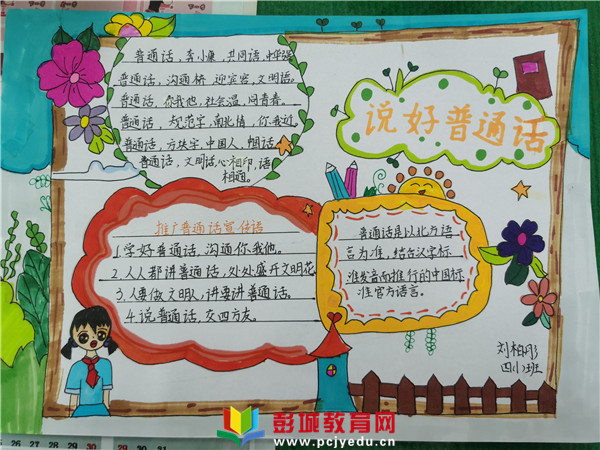 普通话，奔小康，共同话，中华强
普通话，沟通桥，迎宾客，文明话。
普通话，你我他，社会温，同青春。
普通话，规范字，南北情，你我近。
普通话，方块字，中国人，帼话
普通话，文明话，心相印，语
相通。
说好普通话
推广普通话宣传语
1.学好普通话，沟通你我他。
2.人人都讲普通话，处处盛开文明花
3.人要做文明人，讲要讲普通话。
4.说普通话，交四方友。
普通话是以北方语
言为准，结合汉字标
准发音而推行的中国标
准官方语言。
刘柏彤
四(1)班
彭城教育网
www.pcjyedu.cn
26 27 28 29 30 31